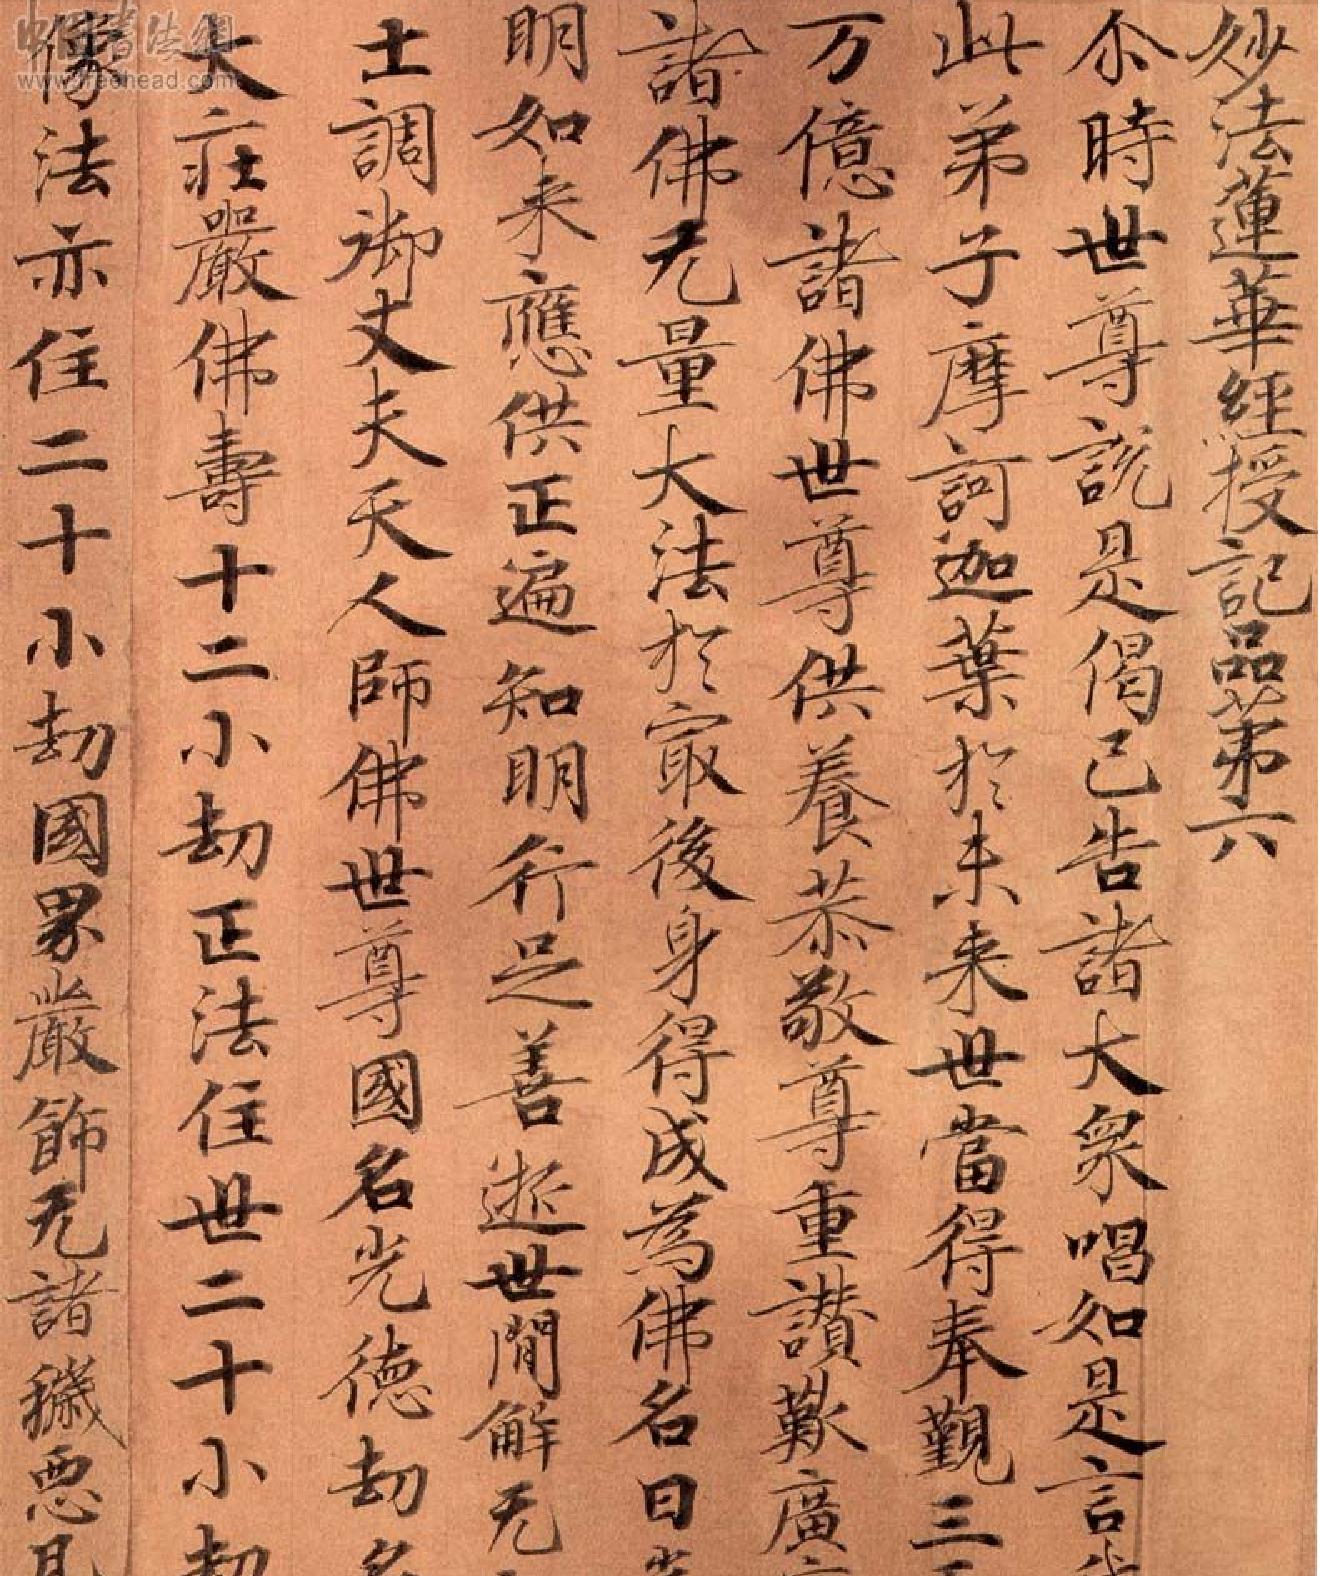 妙法蓮華經授記品第六
尒時世尊說是偈已告諸大衆唱如是言
此弟子摩訶迦葉於未来世當得奉覲三
万億諸佛世尊供養恭敬尊重讃歎廣
諸佛无量大法於㝡後身得成為佛名曰
明如来應供正遍知明行足善逝世間解无
士調御丈夫天人師佛世尊國名光德劫名
大莊嚴佛壽十二小劫正法住世二十小劫
像法亦住二十小劫國界嚴飾无諸穢惡
中国书法網
www.freehead.com